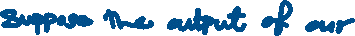 Suppose the output of our